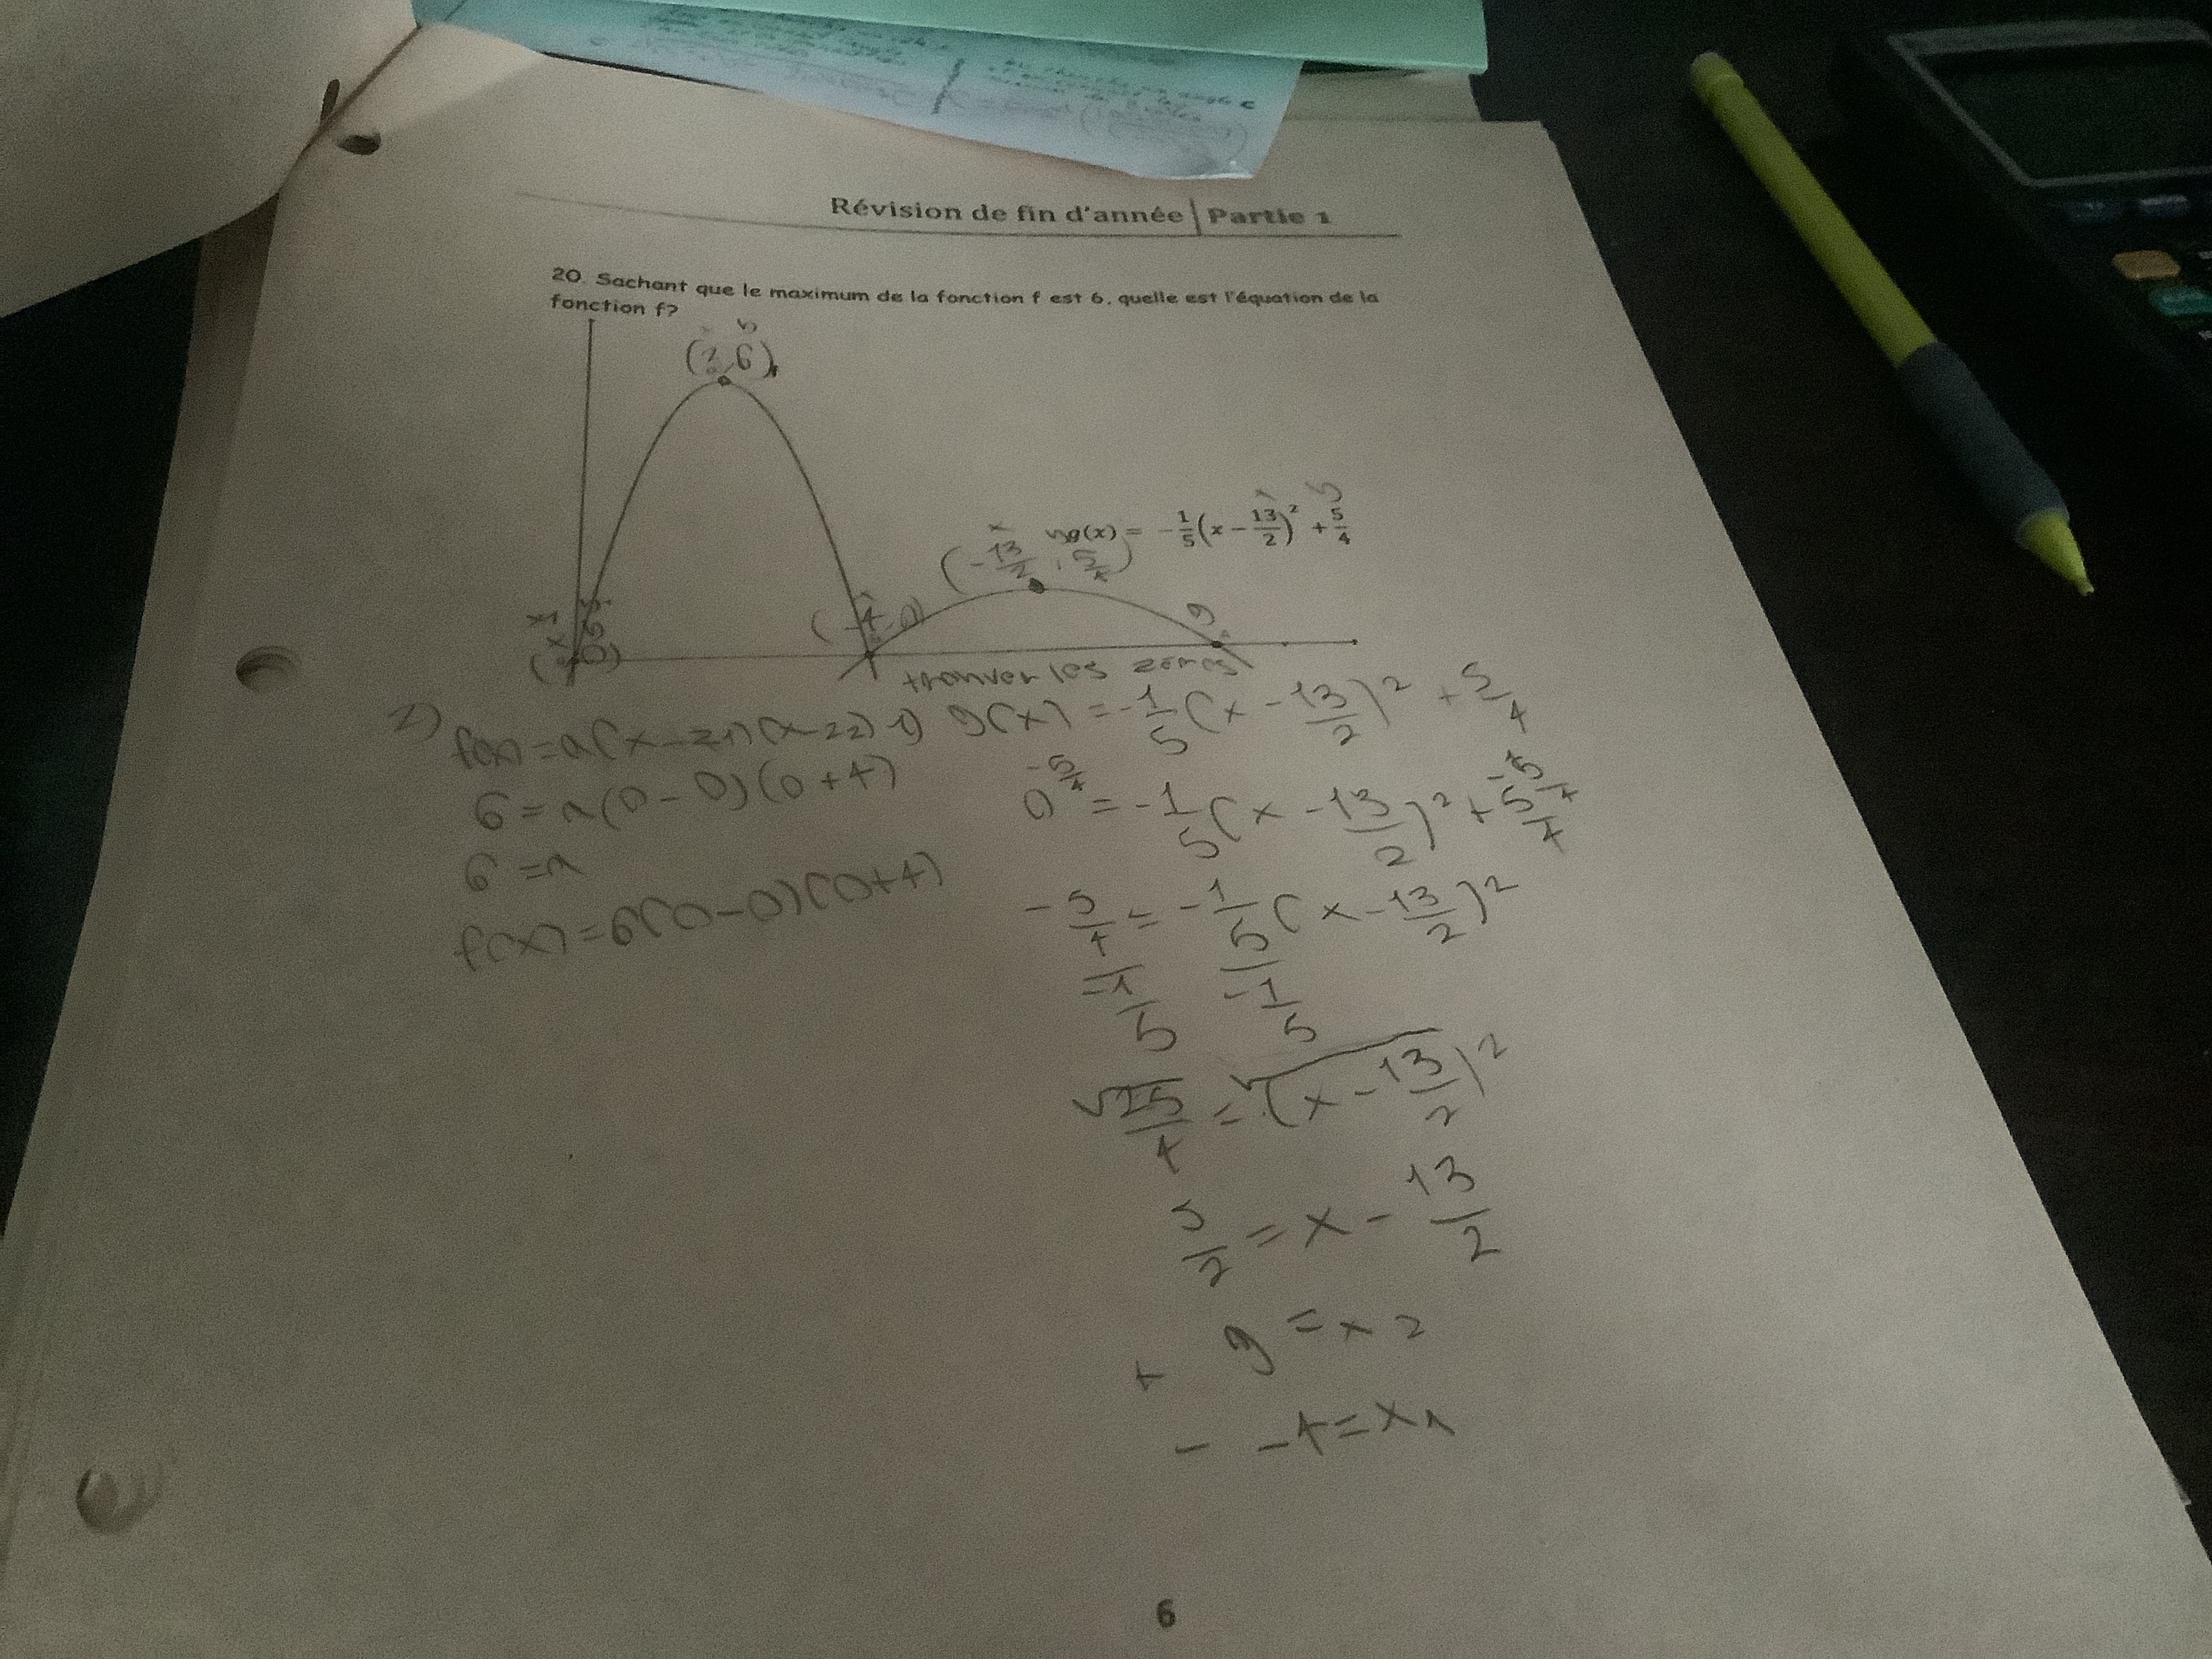 Révision de fin d'année | Partie 1
20. Sachant que le maximum de la fonction f est 6, quelle est l'équation de la
fonction f?
(2, 6)
g(x) = -1/5(x - 13/2)² + 5/4
(-13/2, 5/4)
(-4, 0)
9
trouver les zéros
2) f(x) = a(x-z1)(x-z2)
6 = a(0-0)(0+4)
6 = a
f(x) = 6(0-0)(0+4)
1) g(x) = -1/5(x - 13/2)² + 5/4
-5/4 -5/4
0 = -1/5(x - 13/2)² + 5/4
-5/4 = -1/5(x - 13/2)²
-1/5 -1/5
√25/4 = √(x - 13/2)²
5/2 = x - 13/2
+ 9 = x2
- -4 = x1
6